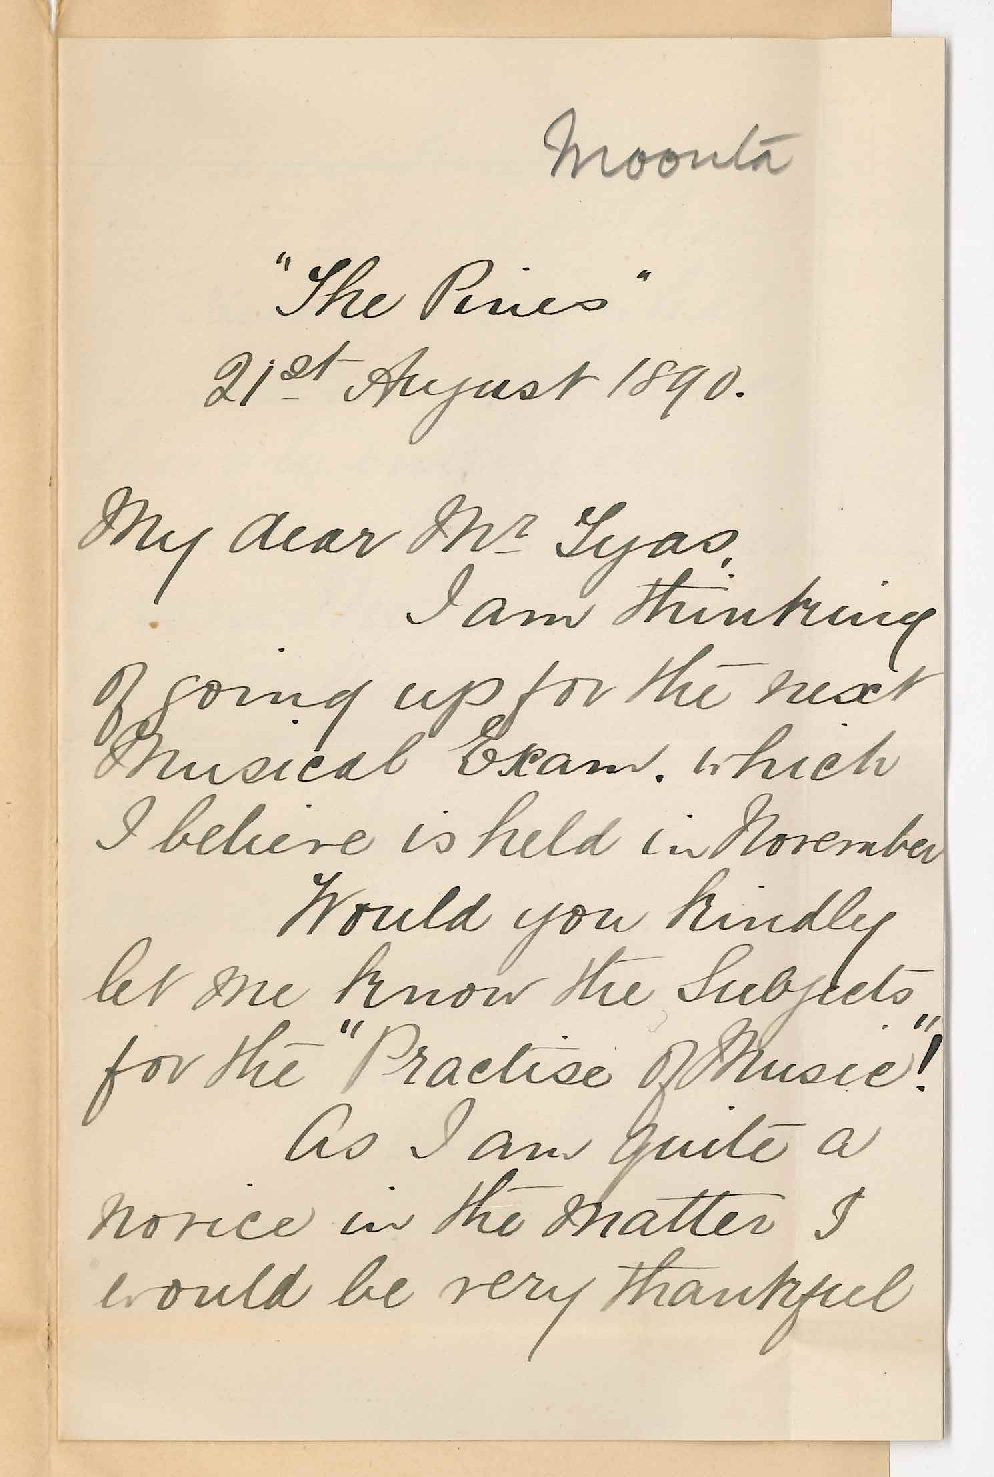 Moonta
"The Pines"
21st August 1890.
My dear Mr Tyas,
I am thinking
of going up for the next
Musical Exam. which
I believe is held in November
Would you kindly
let me know the Subjects
for the "Practise of Music"!
As I am quite a
novice in the matter I
would be very thankful